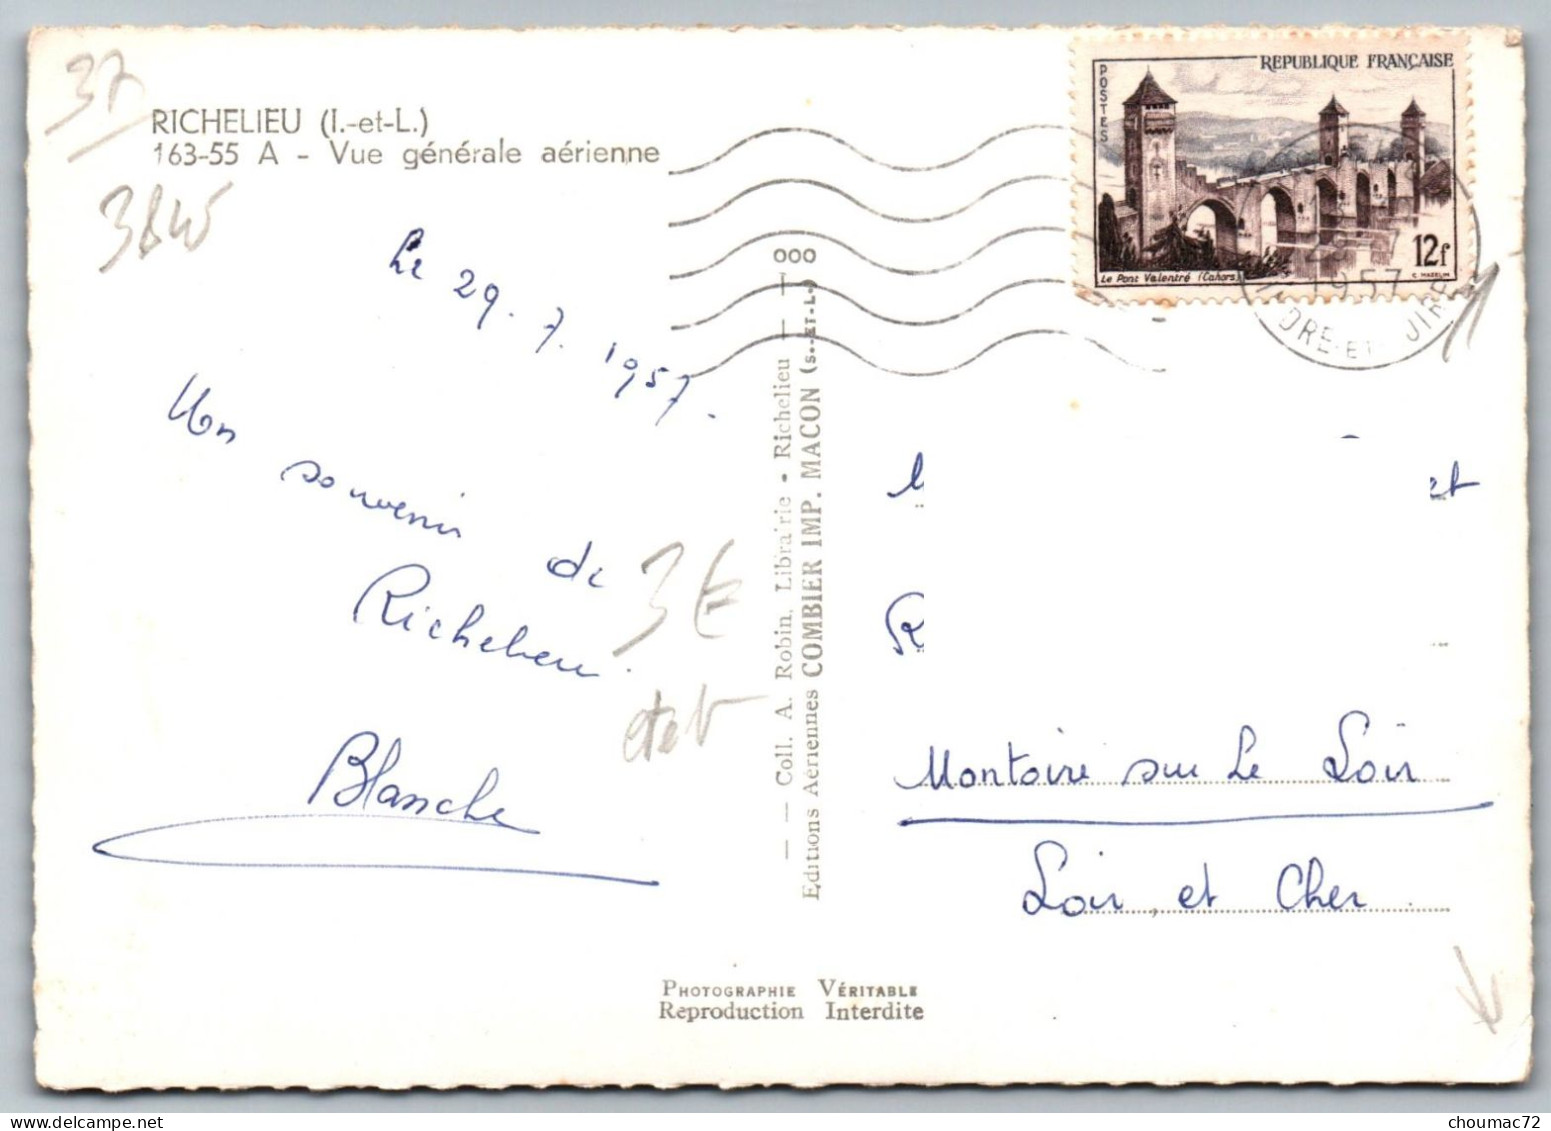 37
RICHELIEU (I.-et-L.)
163-55 A - Vue générale aérienne
Le 29.7.1957.
Un souvenir de
Richelieu.
Blanche
3€
RÉPUBLIQUE FRANÇAISE
POSTES
12f
Le Pont Valentré (Cahors)
C. MAZELIN
1957
INDRE-ET-
000
— — Coll. A. Robin, Librairie • Richelieu — —
Editions Aériennes COMBIER IMP. MACON (S.-ET-L.)
et
Montoire sur Le Loir
Loir et Cher
PHOTOGRAPHIE VÉRITABLE
Reproduction Interdite
choumac72